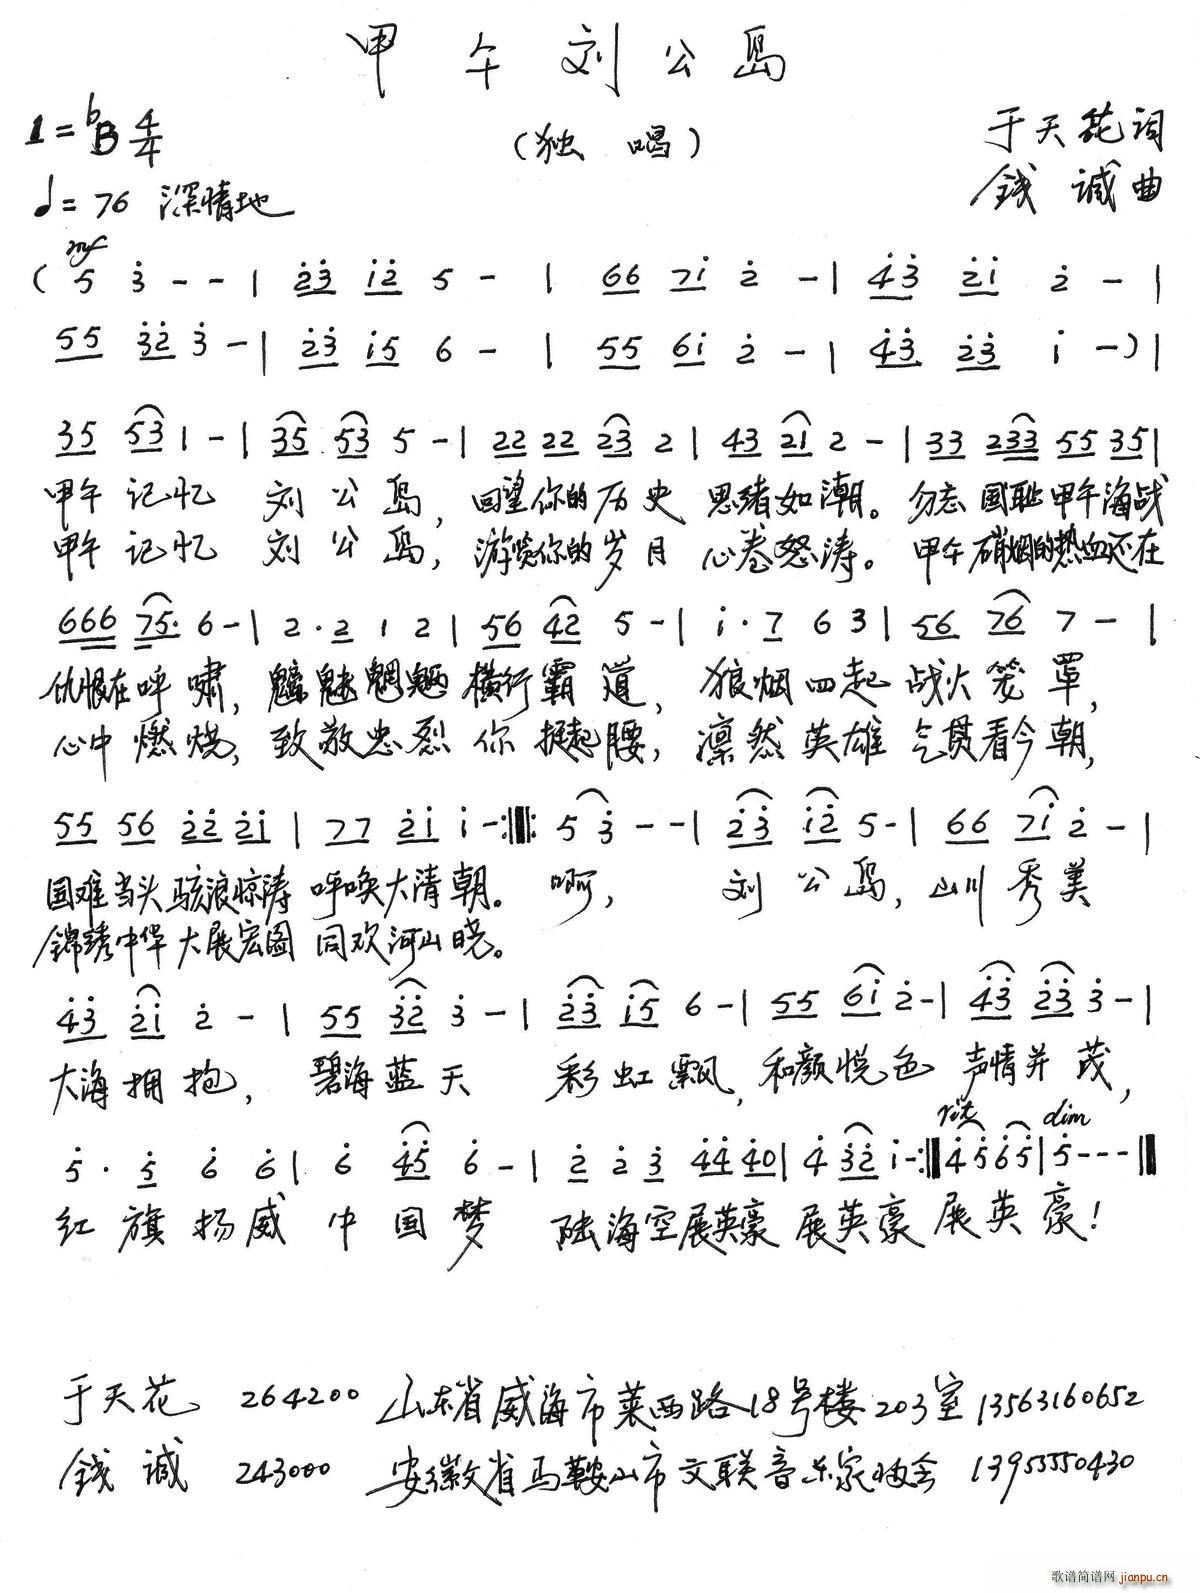 甲午刘公岛
1=♭B 4/4
(独 唱)
于天花词
♩=76 深情地
钱 诚曲
mf
( 5 3̇ - - | 2̇3̇ 1̇2̇ 5 - | 66 71̇ 2̇ - | 4̇3̇ 2̇1̇ 2̇ - |
55 3̇2̇ 3̇ - | 2̇3̇ 1̇5 6 - | 55 61̇ 2̇ - | 4̇3̇ 2̇3̇ 1̇ - ) |
35 53 1 - | 35 53 5 - | 22 22 23 2 | 43 21 2 - | 33 233 55 35 |
甲午 记忆 刘 公 岛, 回望你的 历 史 思绪如潮。 勿忘 国耻 甲午海战
甲午 记忆 刘 公 岛, 游览你的 岁 月 心卷怒涛。 甲午 硝烟的热血还在
666 75· 6 - | 2·2 1 2 | 56 42 5 - | 1̇·7 6 3 | 56 76 7 - |
仇恨在呼 啸, 魑魅魍魉 横行霸 道, 狼烟四起 战火笼 罩,
心中 燃 烧, 致敬忠烈 你 挺起腰, 凛然英雄 气贯看今朝,
55 56 2̇2̇ 2̇1̇ | 77 2̇1̇ 1̇ - :‖: 5 3̇ - - | 2̇3̇ 1̇2̇ 5 - | 66 71̇ 2̇ - |
国难当头 骇浪惊涛 呼唤大清朝。 啊, 刘 公 岛, 山川 秀 美
锦绣中华 大展宏图 同欢河山晓。
4̇3̇ 2̇1̇ 2̇ - | 55 3̇2̇ 3̇ - | 2̇3̇ 1̇5 6 - | 55 61̇ 2̇ - | 4̇3̇ 2̇3̇ 3̇ - |
大海 拥 抱, 碧海 蓝 天 彩 虹 飘, 和颜 悦 色 声情并 茂,
rit dim
5̇ · 5̇ 6̇ 6̇ | 6̇ 4̇5̇ 6̇ - | 2̇ 2̇ 3̇ 4̇4̇ 4̇0 | 4̇ 3̇2̇ 1̇ - :‖ 4̇5̇6̇5̇ | 5̇ - - - ‖
红 旗 扬 威 中 国 梦 陆海空展英豪 展英豪 展英豪!
于天花 264200 山东省威海市莱西路18号楼203室 13563160652
钱 诚 243000 安徽省马鞍山市文联音乐家协会 13955550430
歌谱简谱网
jianpu.cn